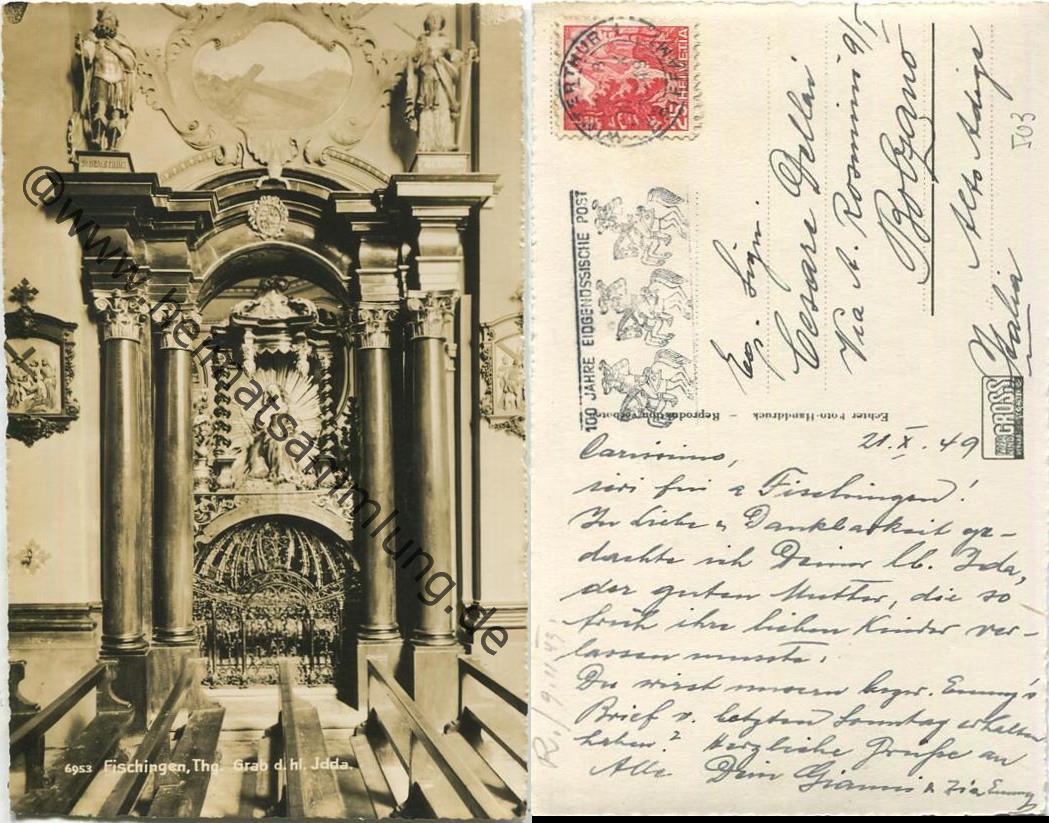 6953 Fischingen, Thg. Grab d. hl. Jdda.
@www.heimatsammlung.de
WINTERTHUR 1
25 HELVETIA
100 JAHRE EIDGENÖSSISCHE POST
Egr. Sign.
Cesare Gellai
Via A. Rosmini 9/I
Bolzano
Alto Adige
Italia
503
Echter Foto-Handdruck – Reproduktion verboten
GROSS
21.X.49
Carissimo,
ieri fui a Fischingen!
In Liebe u Dankbarkeit ge-
dachte ich Deiner lb. Ida,
der guten Mutter, die so
früh ihre lieben Kinder ver-
lassen musste.
Du wirst unsern bezw. Emmy's
Brief v. letzten Sonntag erhalten
haben? Herzliche Grüsse an
Alle Dein Gianni u Zia Emmy
R./9.11.49.